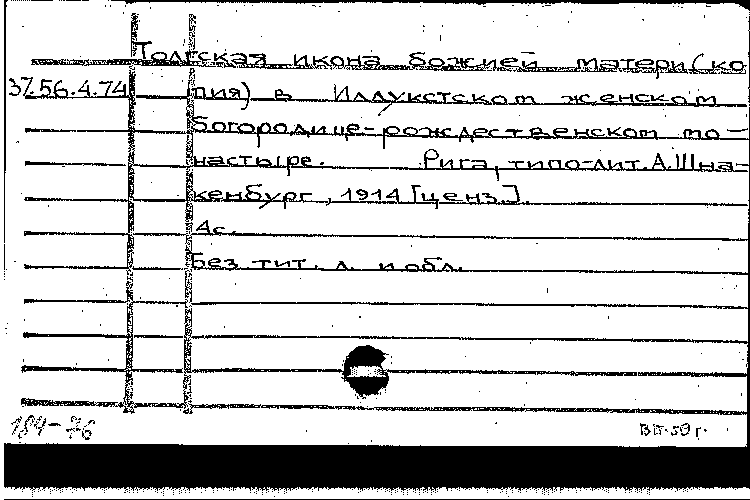 Толгская икона божией матери(ко
37.56.4.74 пия) в Иллукстском женском
богородице-рождественском мо-
настыре. Рига, типо-лит. А.Шна-
кенбург, 1914 [ценз.].
4с.
Без тит. л. и обл.
184-76